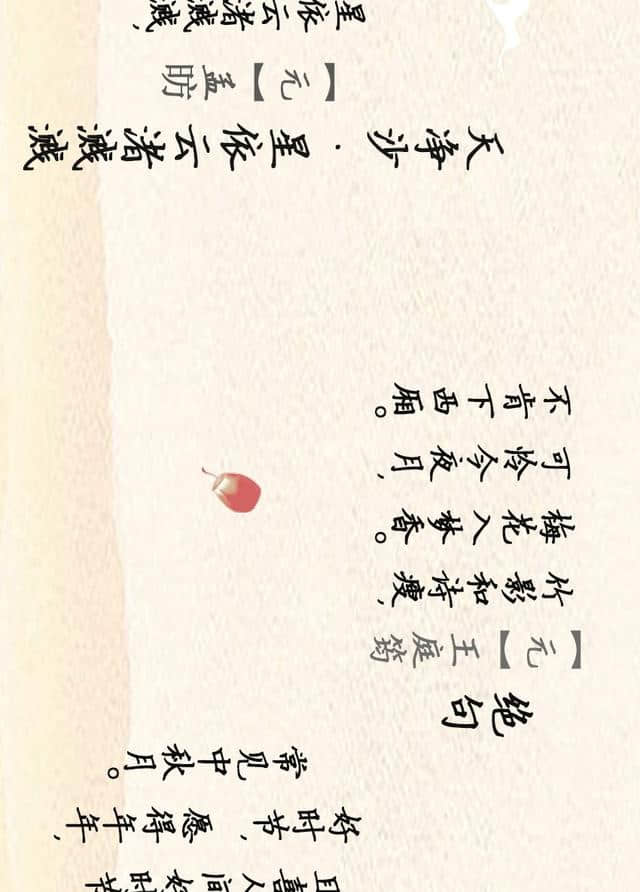 且喜人间好时节
好时节，愿得年年，
常见中秋月。
绝句
【元】王庭筠
竹影和诗瘦，
梅花入梦香。
可怜今夜月，
不肯下西厢。
天净沙·星依云渚溅溅
【元】孟昉
星依云渚溅溅，